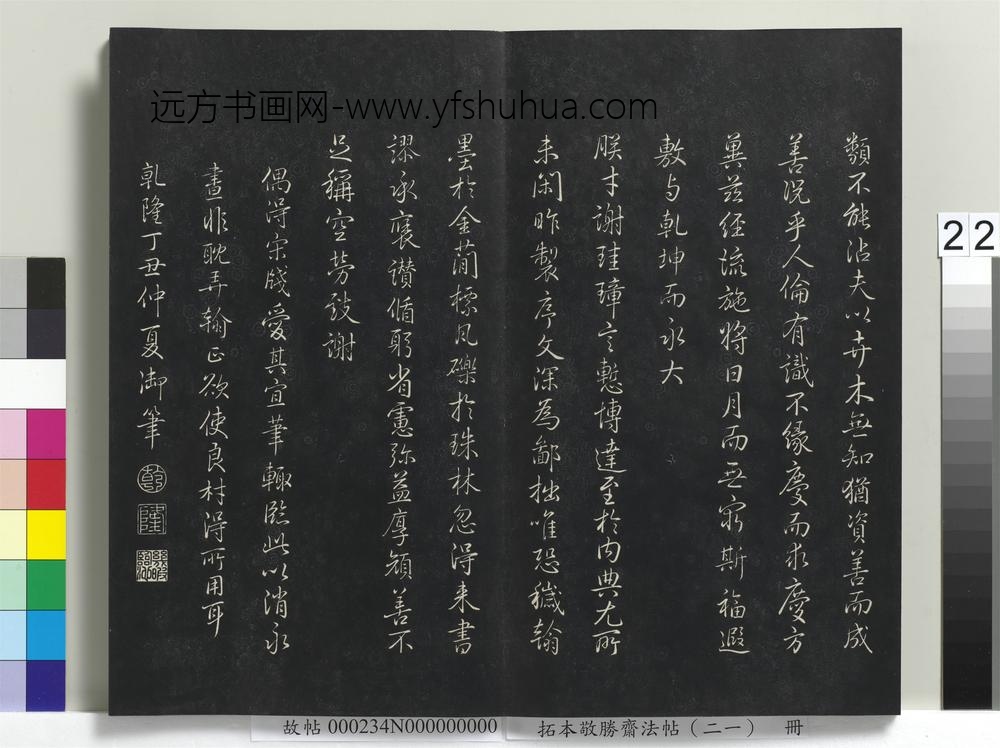 远方书画网-www.yfshuhua.com
類不能沾夫以卉木無知猶資善而成
善況乎人倫有識不緣慶而求慶方
冀茲經流施將日月而無窮斯福遐
敷与乾坤而永大
朕才謝珪璋言慙博達至於內典尤所
未閑昨製序文深為鄙拙唯恐穢翰
墨於金蕳標瓦礫於珠林忽得来書
謬承褒讃循躬省憲弥益厚顔善不
足稱空勞致謝
偶得宋牋愛其宜筆輙臨此以消永
晝非耽弄翰正欲使良材得所用耳
乾隆丁丑仲夏御筆
乾
隆
22
故帖 000234N000000000
拓本敬勝齋法帖(二一) 冊